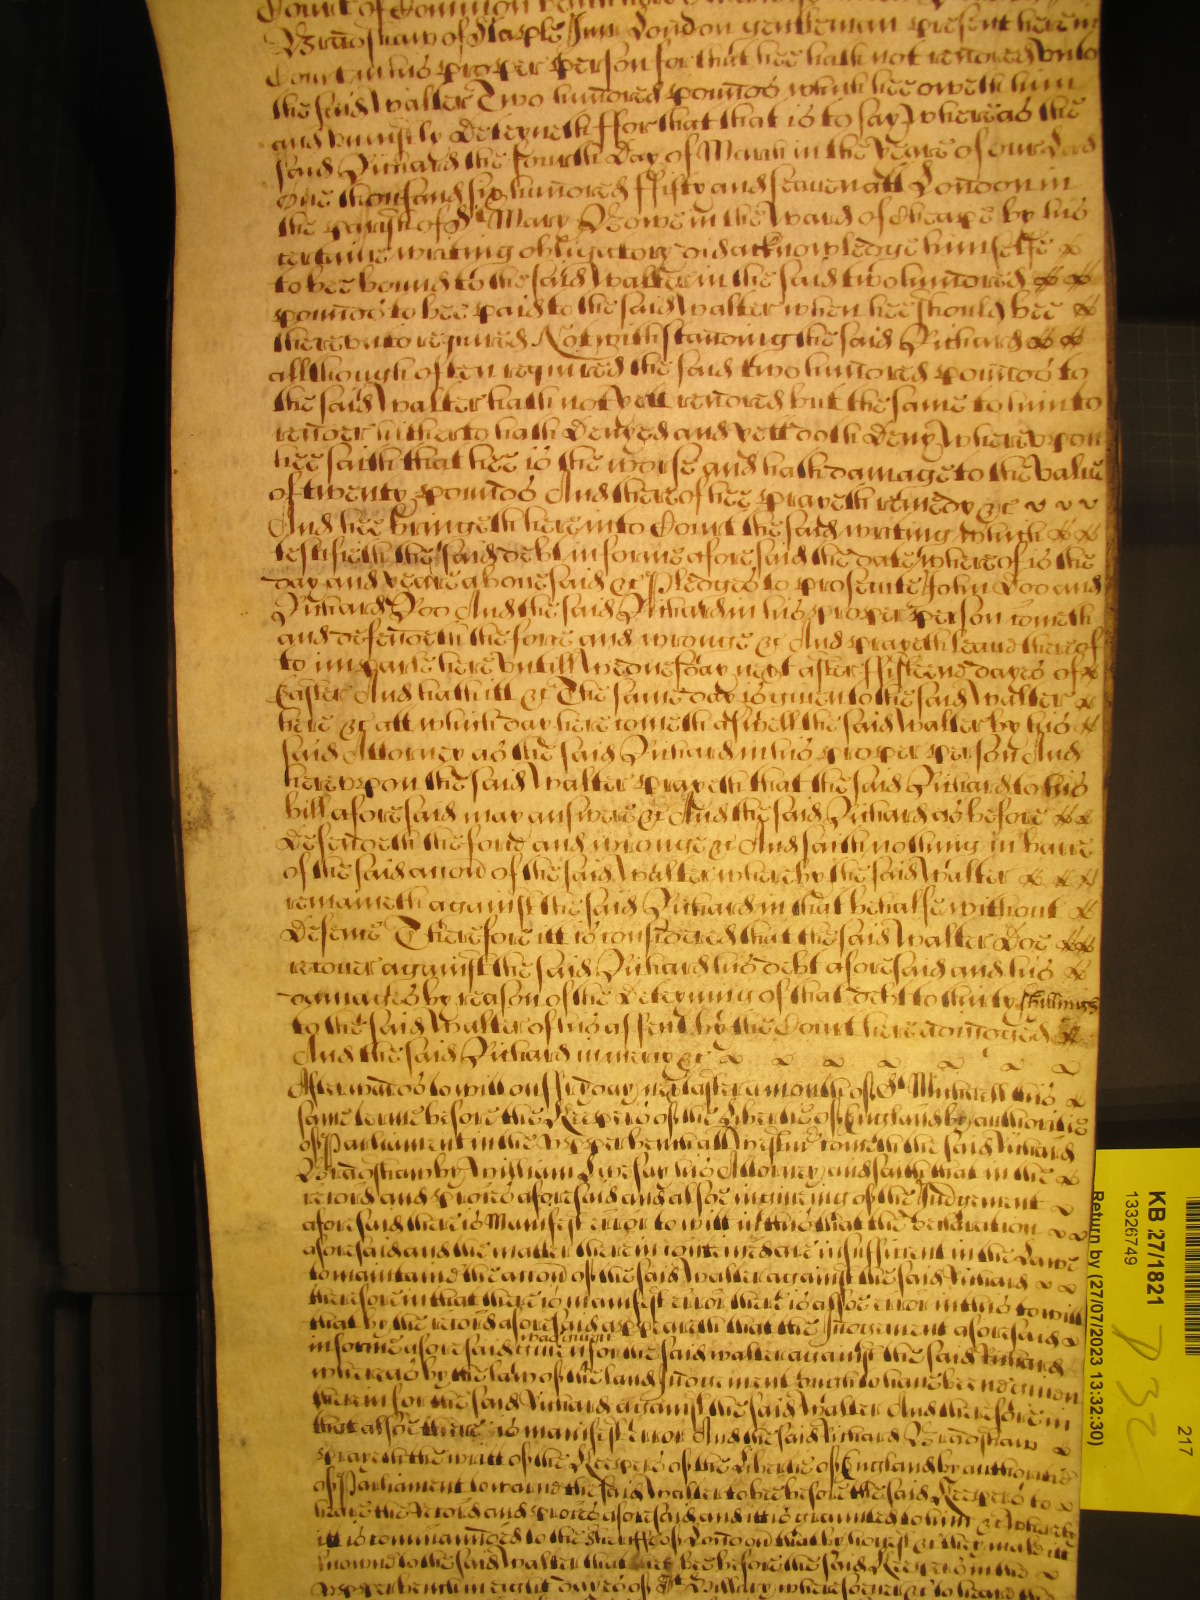 Court of Common
Bradshaw of Staple Inn London gentleman present here in
Court in his proper person for that hee hath not rendred unto
the said Walter Two hundred pounds which hee oweth him
and uniustly deteyneth ffor that that is to say whereas the
said Richard the fourth day of March in the yeare of our Lord
one thousand six hundred ffifty and seaven att London in
the parish of St Mary Bowe in the Ward of Cheape by his
certaine writing obligatory did acknowledge himselfe
to bee bound to the said Walter in the said two hundred
pounds to bee paid to the said Walter when hee should bee
thereunto required Notwithstanding the said Richard
although often required the said two hundred pounds to
the said Walter hath not yett rendred but the same to him to
render hitherto hath denyed and yett doth deny whereupon
hee saith that hee is the worse and hath damage to the value
of twenty pounds And thereof hee prayeth remedy &c
And hee bringeth here into Court the said writing which
testifieth the said debt in forme aforesaid the date whereof is the
day and yeare abovesaid &c Pledges to prosecute John Doo and
Richard Roo And the said Richard in his proper person cometh
and defendeth the force and wronge &c And prayeth leave thereof
to imparle here untill Wednesday next after ffifteene dayes of
Easter And hath itt &c The same day is given to the said Walter
here &c att which day here cometh aswell the said Walter by his
said Attorney as the said Richard in his proper person And
hereupon the said Walter prayeth that the said Richard to his
bill aforesaid may answere &c And the said Richard as before
defendeth the force and wronge &c And saith nothing in barre
of the said accion of the said Walter whereby the said Walter
remaineth against the said Richard in that behalfe without
defence Therefore itt is considered that the said Walter doe
recover against the said Richard his debt aforesaid and his
damages by reason of the deteyning of that debt to thirty shillings
to the said Walter of his assent by the Court here adiudged
And the said Richard in mercy &c
Afterwards to witt on ffryday next after a month of St Michaell this
same terme before the Keepers of the Libertie of England by authoritie
of Parliament in the upper bench att Westmr cometh the said Richard
Bradshaw by William Livesay his Attorney and saith that in the
record and proces aforesaid and alsoe in giveing of the Judgement
aforesaid there is Manifest error to witt in this that the declaration
aforesaid and the matter therein conteined are insufficient in the Lawe
to maintaine the accion of the said Walter against the said Richard
therefore in that there is manifest error there is alsoe error in this to witt
that by the record aforesaid appeareth that the Judgement aforesaid
in forme aforesaid was given for the said Walter against the said Richard
whereas by the law of the land Judgement ought to have been given
therein for the said Richard against the said Walter And therefore in
that alsoe there is manifest error And the said Richard Bradshaw
prayeth the writt of the Keepers of the Libertie of England by authoritie
of Parliament to warne the said Walter to bee before the said Keepers to
heare the record and proces aforesaid and itt is graunted to him &c whereby
itt is commaunded to the Sheriffe of London that by honest &c they make itt
knowne to the said Walter that hee bee before the said Keepers in the
upper bench in eight dayes of St Hillary wheresoever &c to heare the
KB 27/1821
13326749
Return by (27/07/2023 13:32:30)
217